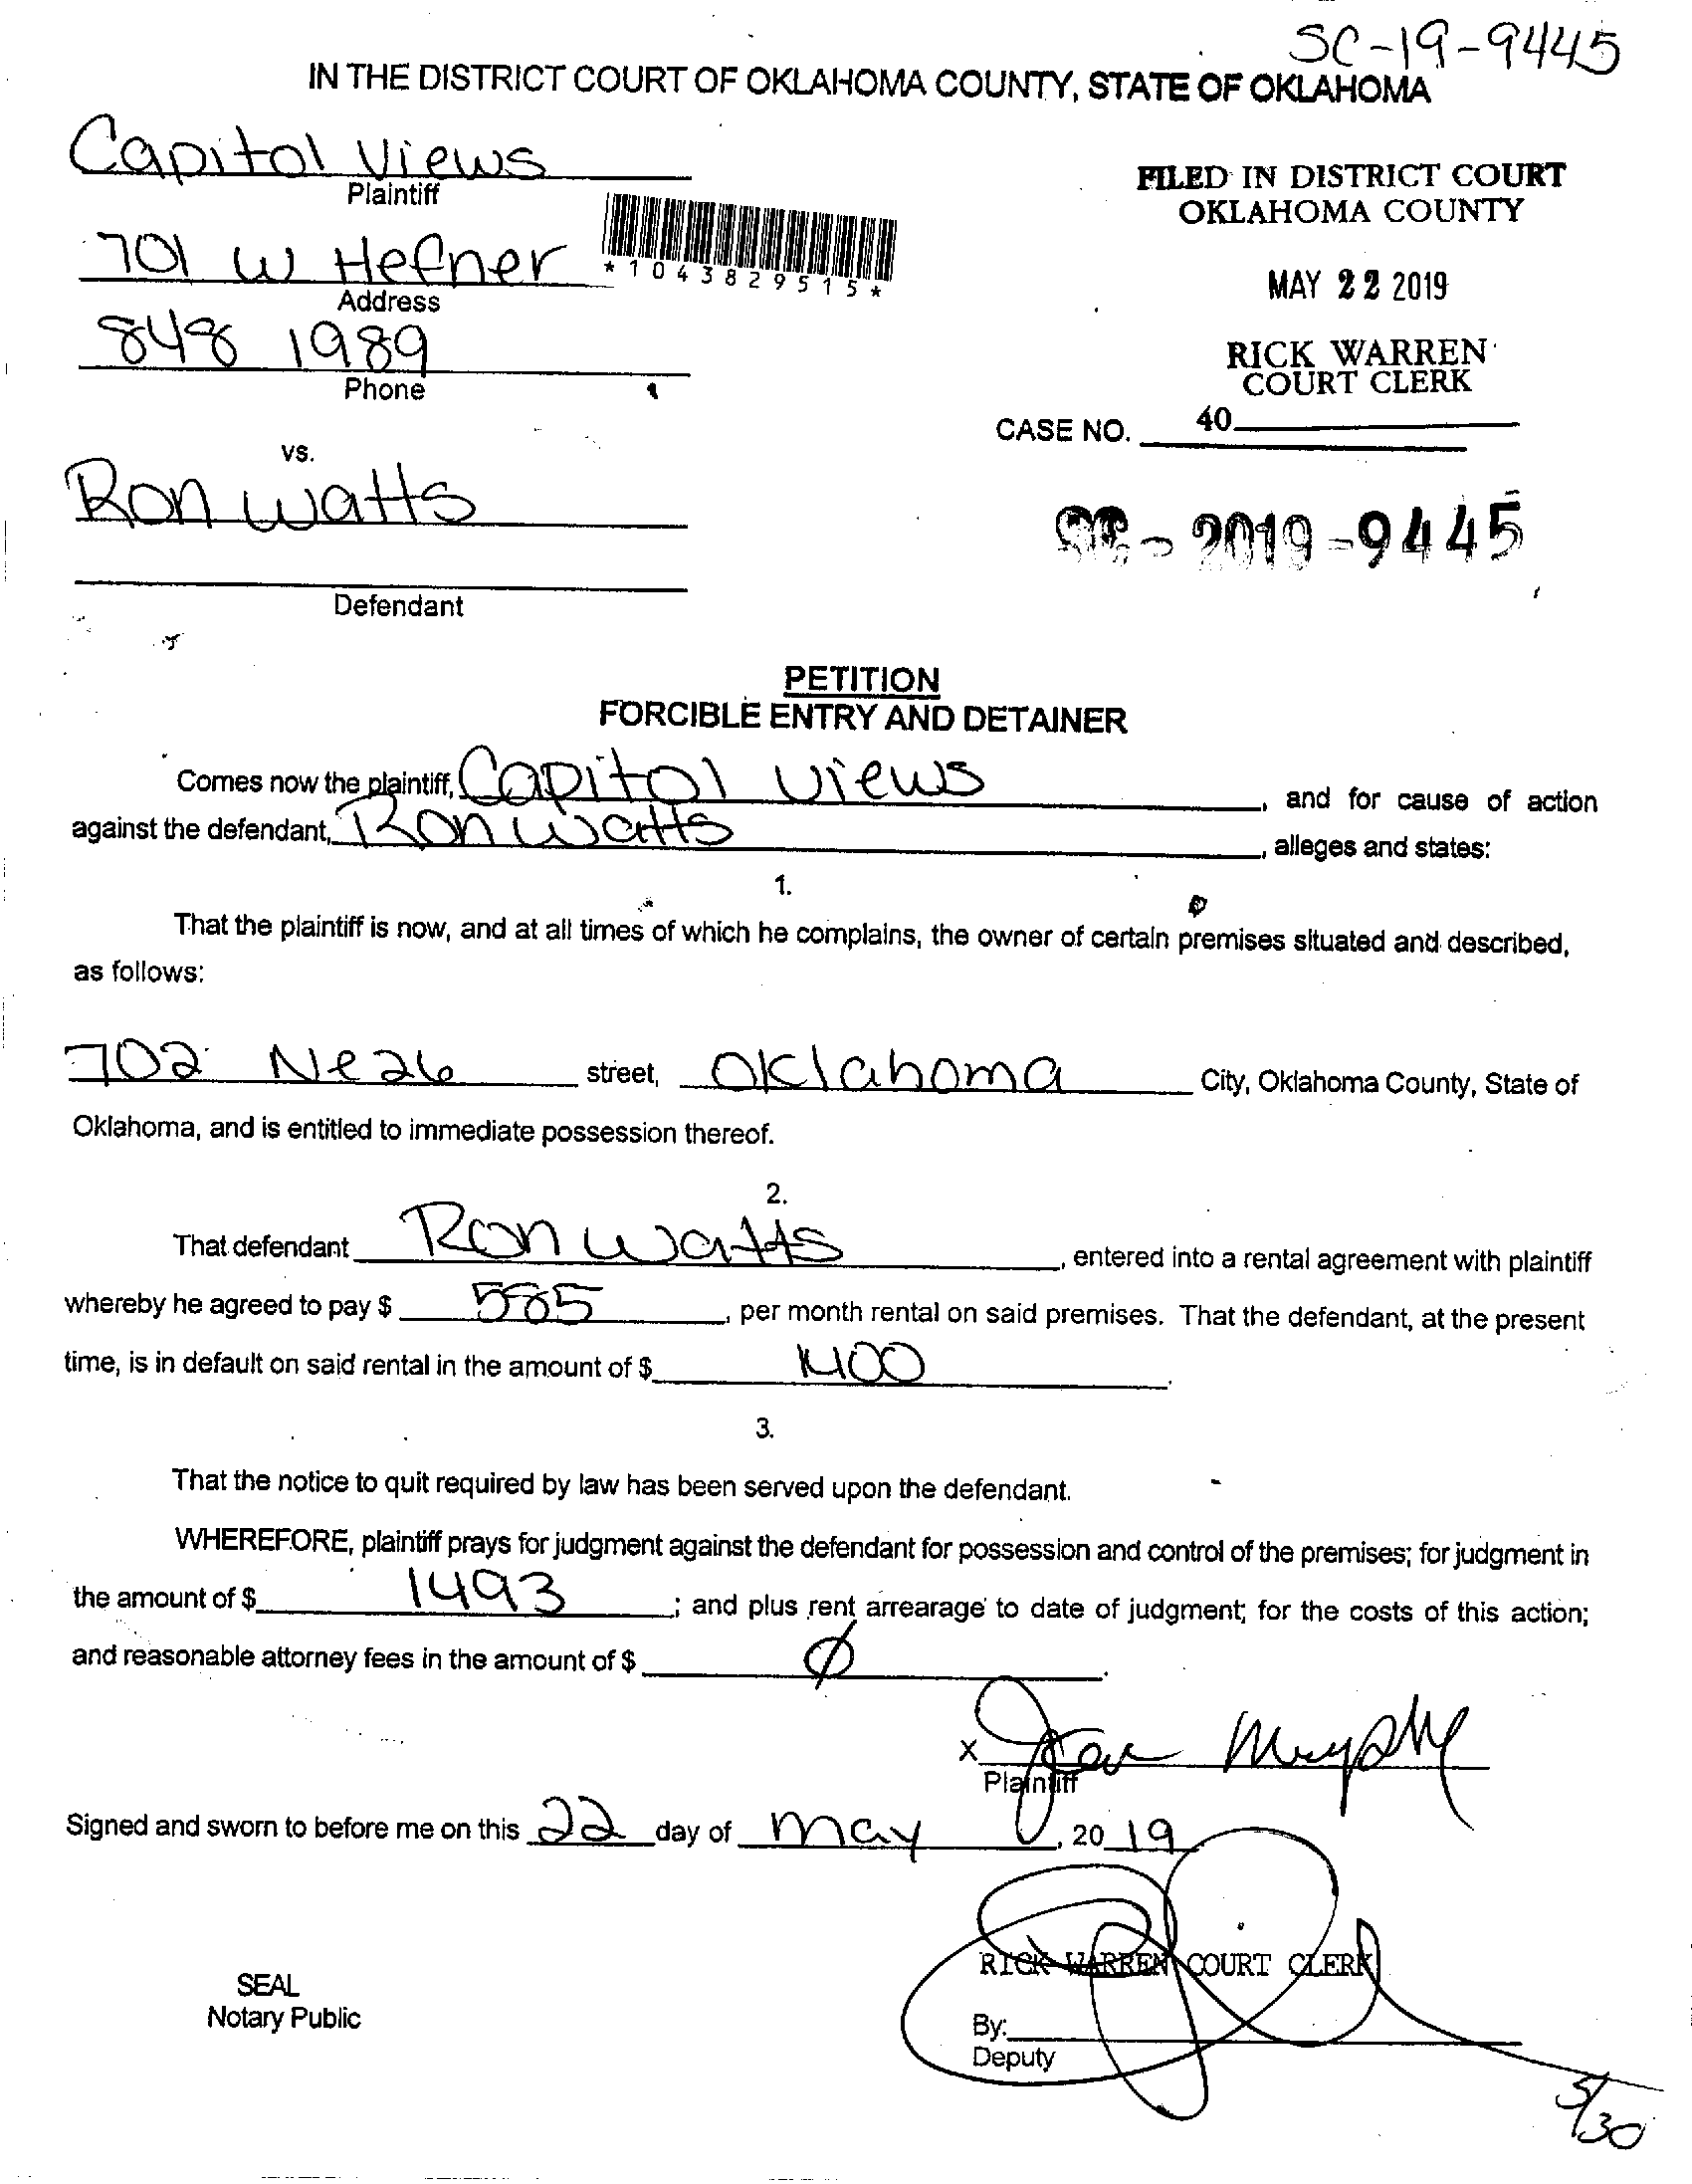 SC-19-9445
IN THE DISTRICT COURT OF OKLAHOMA COUNTY, STATE OF OKLAHOMA
Capitol Views
Plaintiff
FILED IN DISTRICT COURT
OKLAHOMA COUNTY
701 W Hefner
*1043829515*
Address
MAY 22 2019
848 1989
Phone
RICK WARREN
COURT CLERK
CASE NO. 40
vs.
Ron Watts
SC-2019-9445
Defendant
PETITION
FORCIBLE ENTRY AND DETAINER
Comes now the plaintiff, Capitol Views, and for cause of action
against the defendant, Ron Watts, alleges and states:
1.
That the plaintiff is now, and at all times of which he complains, the owner of certain premises situated and described,
as follows:
702 Ne 26 street, Oklahoma City, Oklahoma County, State of
Oklahoma, and is entitled to immediate possession thereof.
2.
That defendant Ron Watts, entered into a rental agreement with plaintiff
whereby he agreed to pay $ 585, per month rental on said premises. That the defendant, at the present
time, is in default on said rental in the amount of $ 1400.
3.
That the notice to quit required by law has been served upon the defendant.
WHEREFORE, plaintiff prays for judgment against the defendant for possession and control of the premises; for judgment in
the amount of $ 1493; and plus rent arrearage to date of judgment; for the costs of this action;
and reasonable attorney fees in the amount of $ Ø.
X Murphy
Plaintiff
Signed and sworn to before me on this 22 day of May, 20 19
RICK WARREN COURT CLERK
SEAL
Notary Public
By:
Deputy
5/30